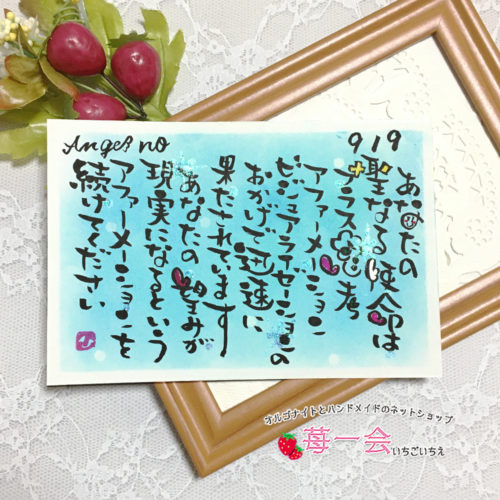 Angel no
919
あなたの
聖なる使命は
プラス思考
アファーメーション
ビジュアライゼーションの
おかげで迅速に
果たされています
あなたの望みが
現実になるという
アファーメーションを
続けてください
ひ
オルゴナイトとハンドメイドのネットショップ
苺一会
いちごいちえ